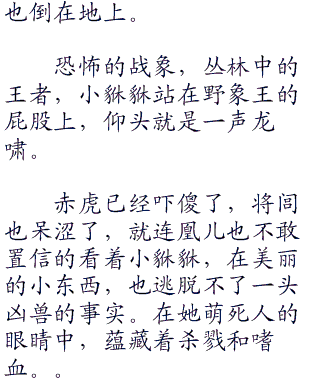 也倒在地上。
恐怖的战象，丛林中的
王者，小貅貅站在野象王的
屁股上，仰头就是一声龙
啸。
赤虎已经吓傻了，将闾
也呆涩了，就连凰儿也不敢
置信的看着小貅貅，在美丽
的小东西，也逃脱不了一头
凶兽的事实。在她萌死人的
眼睛中，蕴藏着杀戮和嗜
血。。